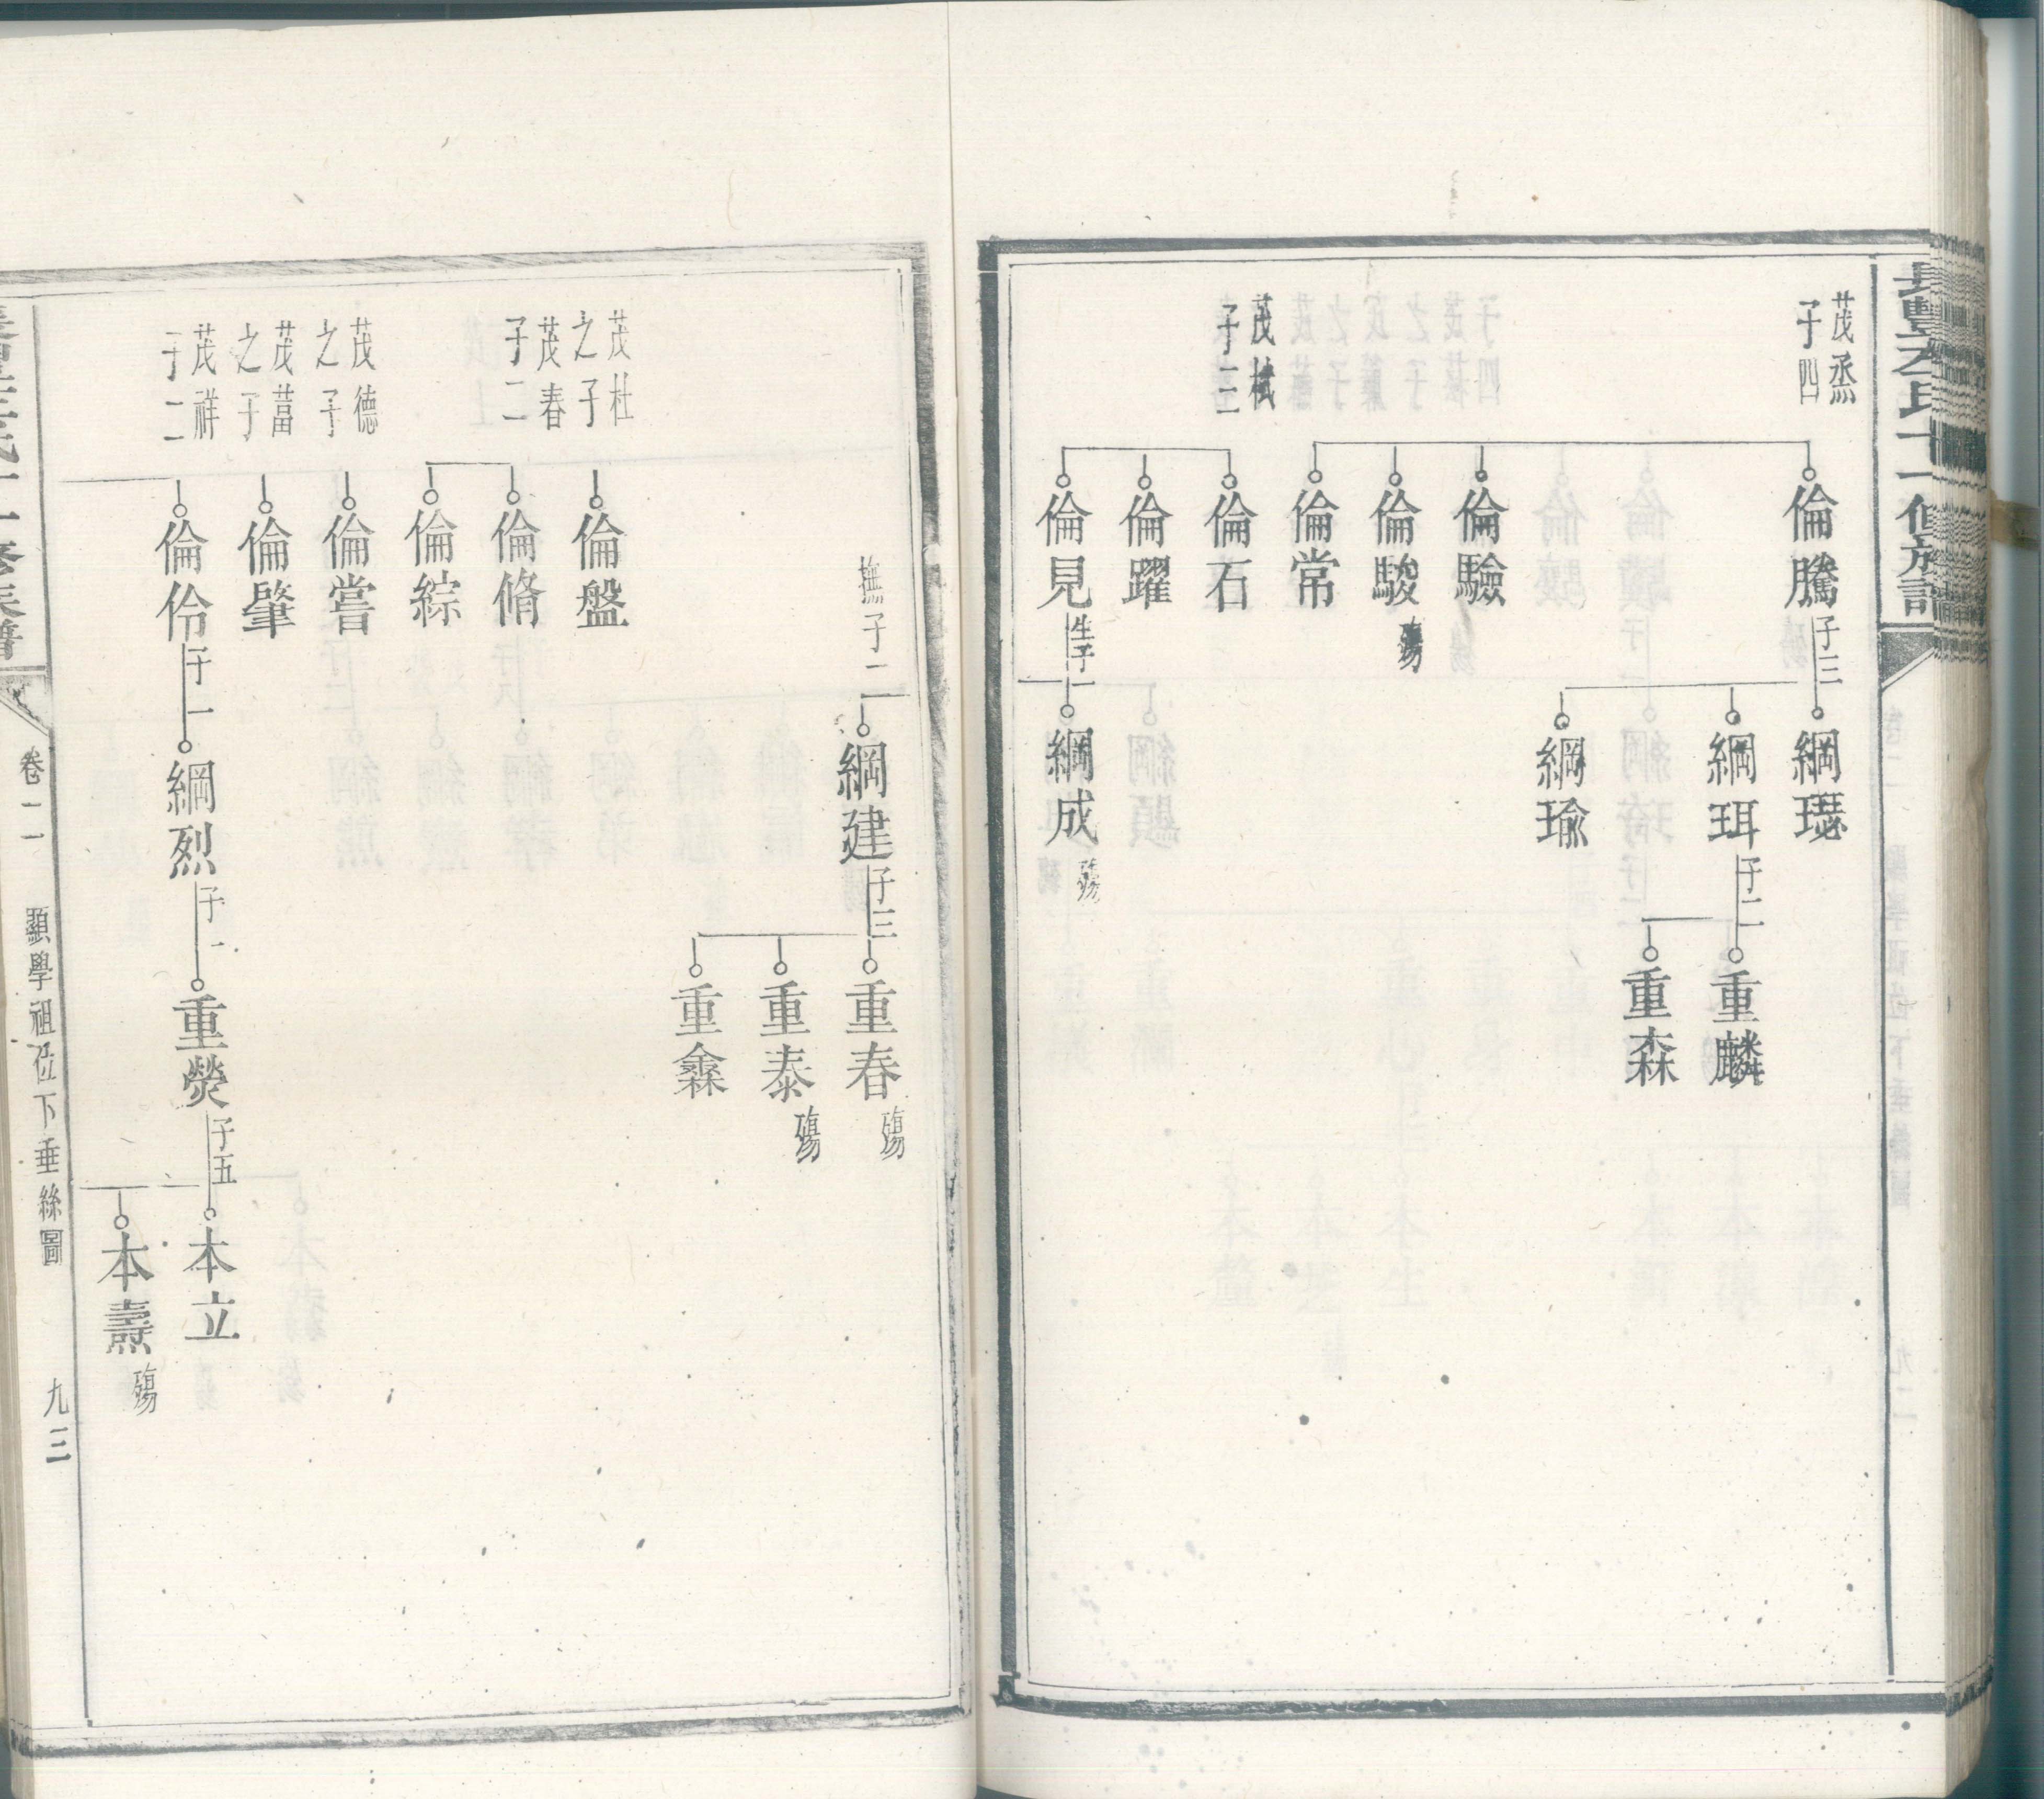 茂烝
子四
倫騰
子三
綱璱
綱珥
子二
重麟
重森
綱瑜
倫驗
倫駿
殤
倫常
茂棫
子三
倫石
倫躍
倫見
生子一
綱成
殤
撫子二
綱建
子三
重春
殤
重泰
殤
重鑫
茂杜
之子
倫盤
茂春
子二
倫脩
倫綜
茂德
之子
倫嘗
茂葍
之子
倫肇
茂祥
子二
倫伶
子一
綱烈
子一
重熒
子五
本立
本燾
殤
卷二
顯學祖位下垂絲圖
九三